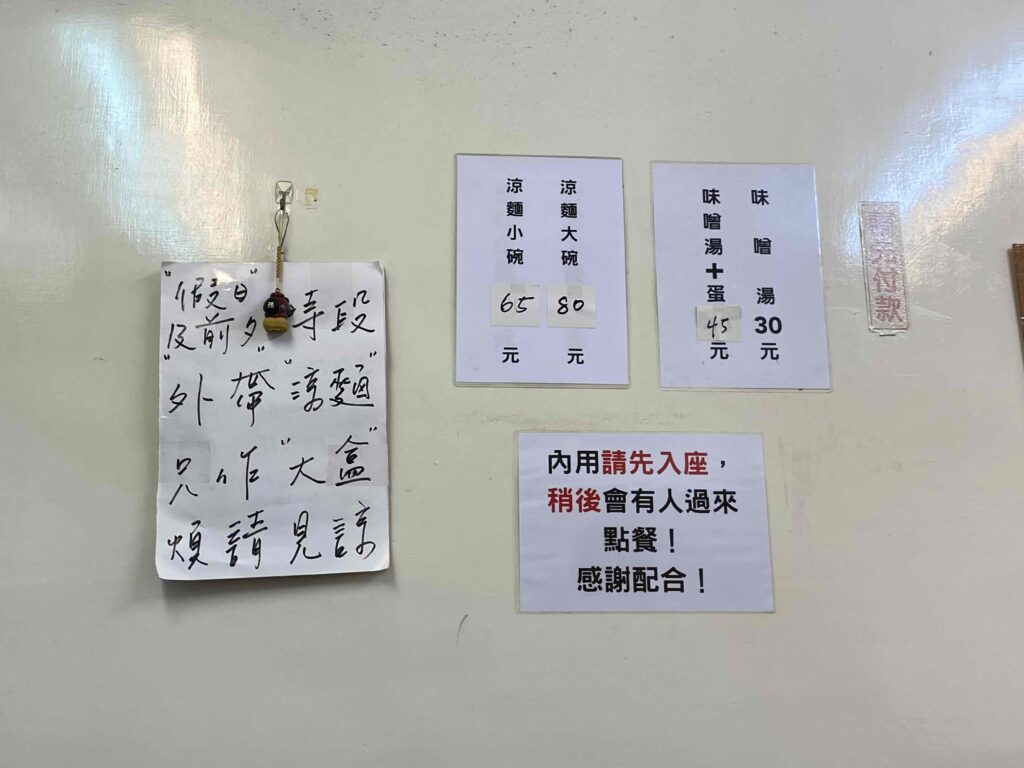 "假日"
及前夕"時段
"外帶"涼麵"
只作"大盒"
煩請見諒
涼麵大碗80元
涼麵小碗65元
味噌湯30元
味噌湯+蛋45元
請先付款
內用請先入座，
稍後會有人過來
點餐！
感謝配合！